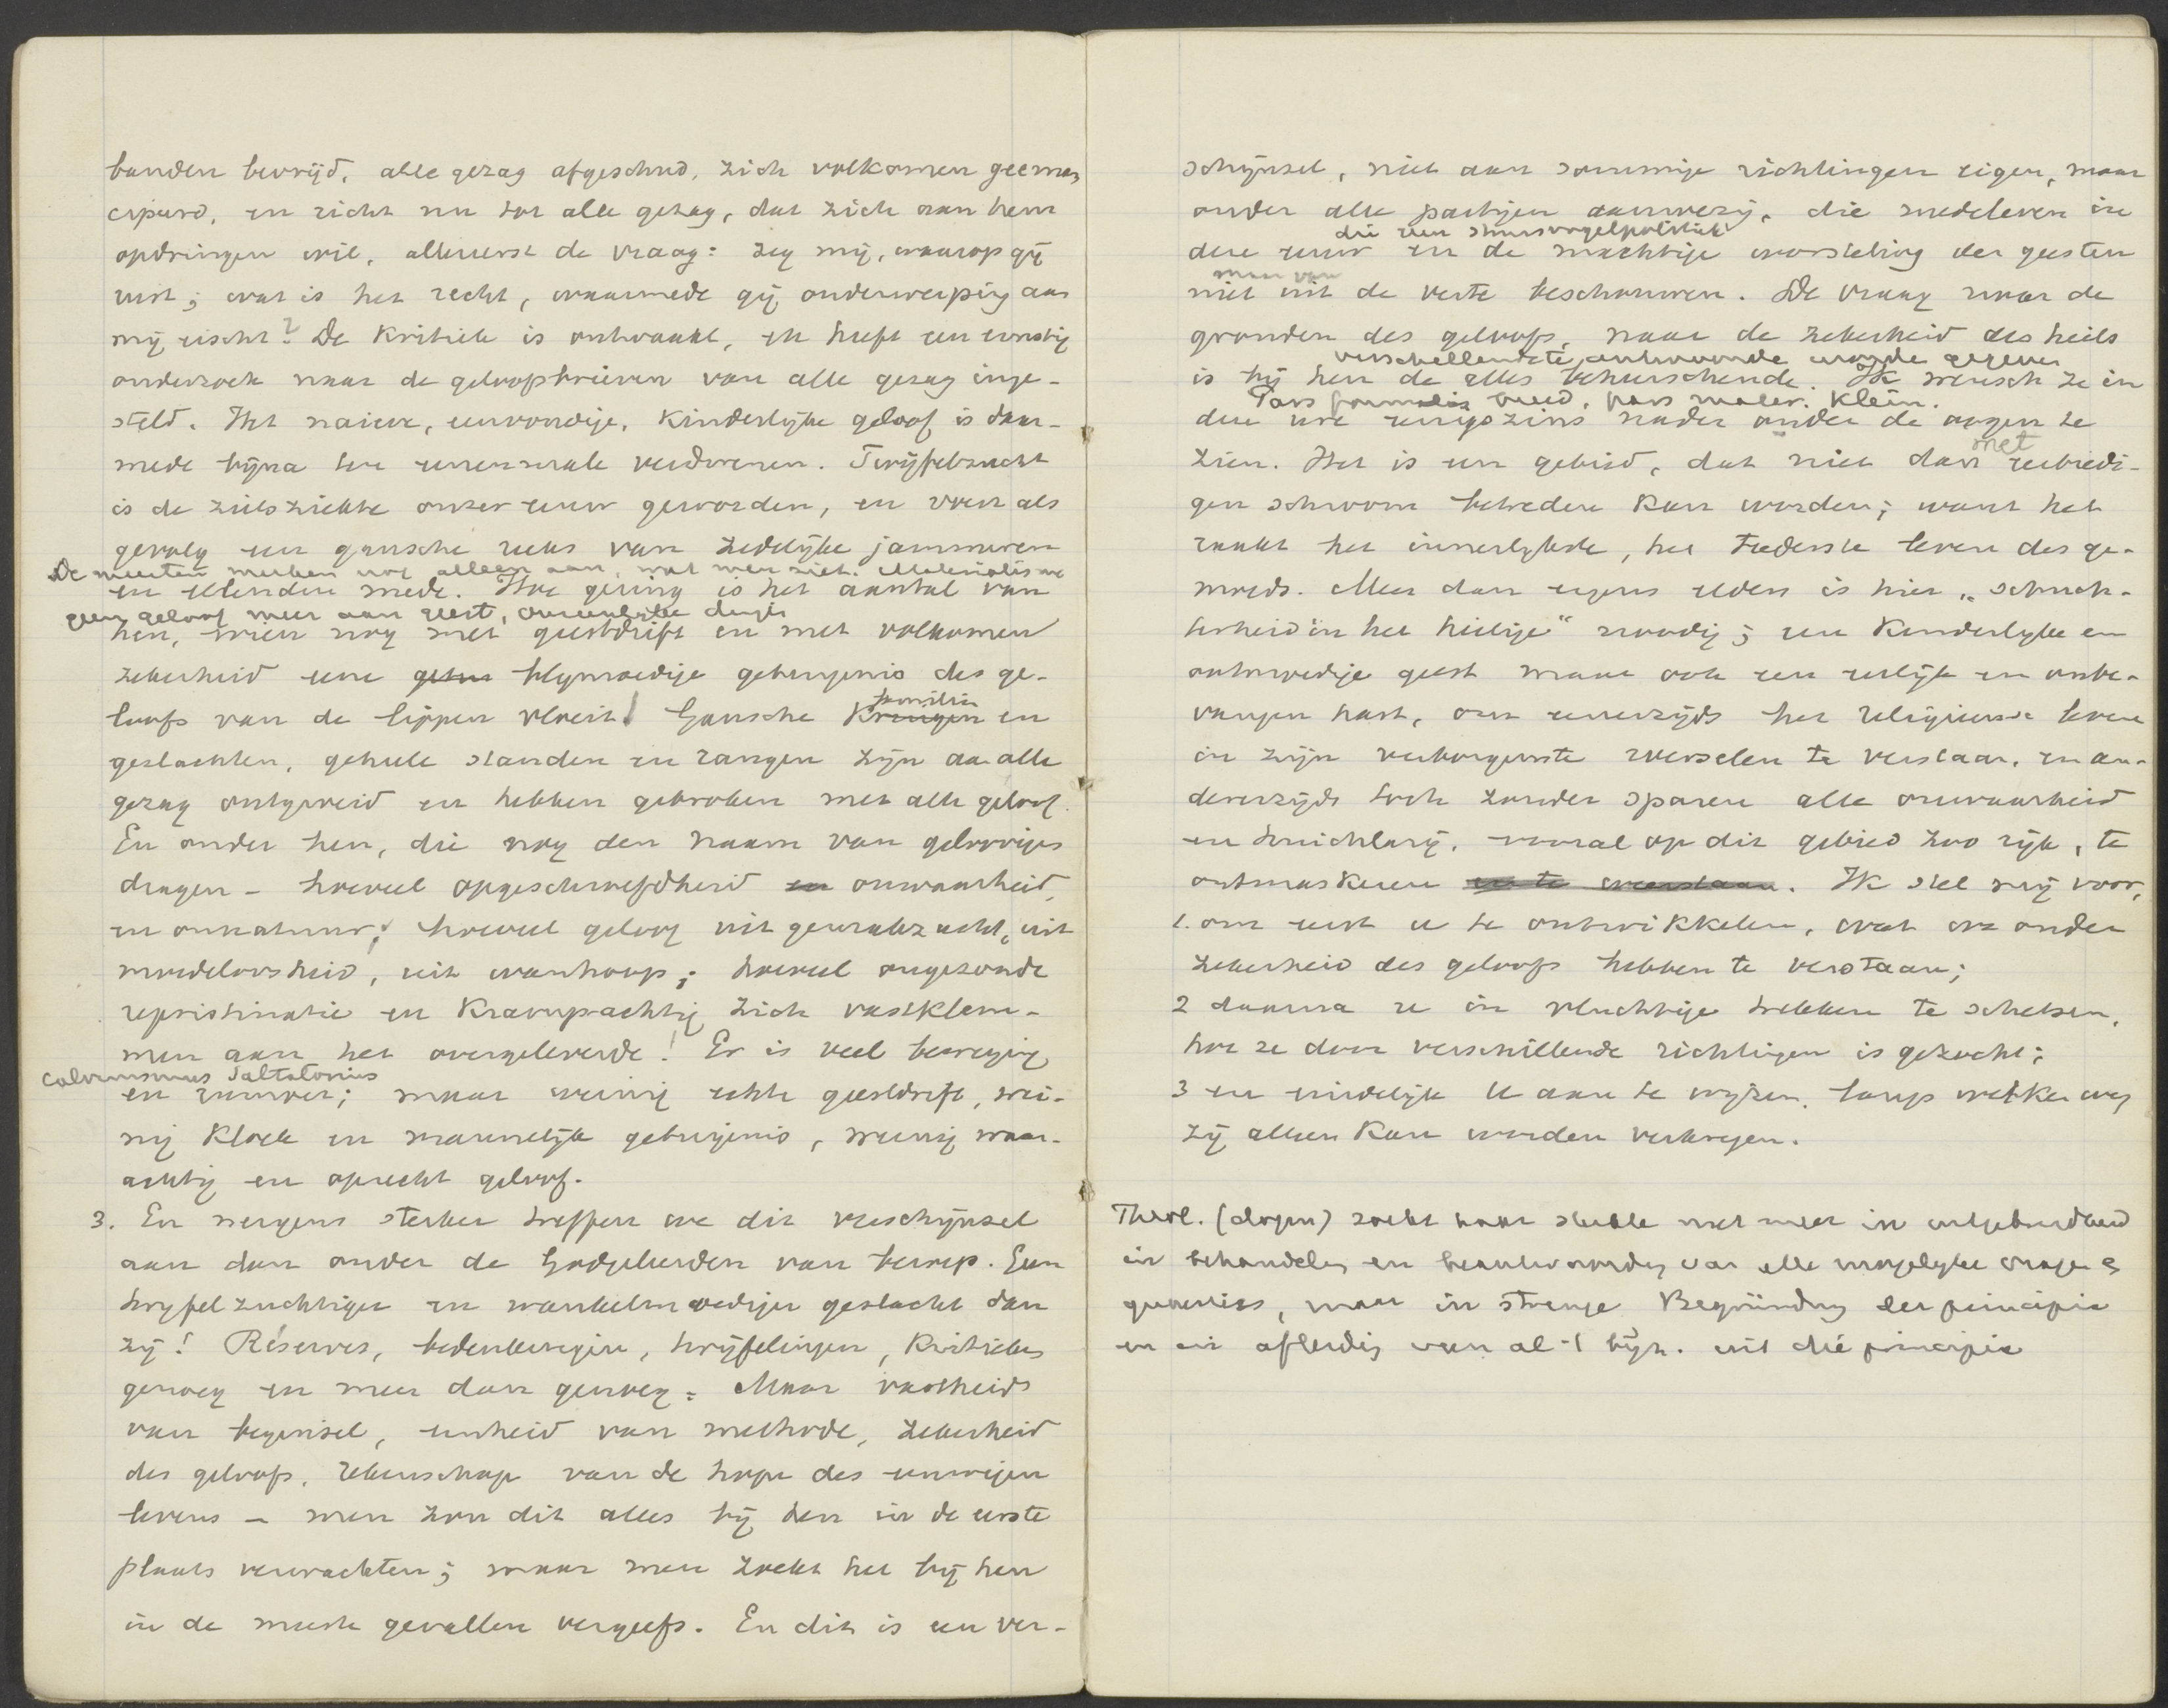 banden bevrijd, alle gezag afgeschud, zich volkomen geeman
cipeerd, en richt nu tot alle gezag, dat zich aan hem
opdringen wil, allereerst de vraag: zeg mij, waarop gij
rust; wat is het recht, waarmede gij onderwerping aan
mij eischt? De Kritiek is ontwaakt, en heeft een ernstig
onderzoek naar de geloofsbrieven van alle gezag inge-
steld. Het naieve, eenvoudige, Kinderlijke geloof is daar-
mede bijna ten eenenmale verdwenen. Twijfelzucht
is de zielsziekte onzer eeuw geworden, en voert als
gevolg een gansche reeks van zedelijke jammeren
De meesten merken nog alleen aan, wat men ziet. Materialisme
en ellenden mede. Hoe gering is het aantal van
geen geloof meer aan geest, onzienlijke dingen
hen, wien nog met geestdrift en met volkomen
zekerheid eene blijmoedige getuigenis des ge-
loofs van de lippen vloeit! Gansche Kringen en
familiën
geslachten, geheele standen en rangen zijn aan alle
gezag ontgroeid en hebben gebroken met alle geloof.
En onder hen, die nog den naam van geloovigen
dragen - hoeveel opgeschroefdheid en onwaarheid,
en onnatuur; hoeveel geloof uit gemakzucht, uit
moedeloosheid, uit wanhoop; hoeveel ongezonde
repristinatie en Krampachtig zich vastklem-
men aan het overgeleverde! Er is veel beweging
calvinismus
en rumoer; maar weinig echte geestdrift, wei-
nig Kloek en mannelijk getuigenis, weinig waar-
achtig en oprecht geloof.
3. En nergens sterker treffen we dit verschijnsel
aan dan onder de Godgeleerden van beroep. Geen
twijfelzuchtiger en wankelmoediger geslacht dan
zij! Réserves, bedenkingen, twijfelingen, Kritieken
genoeg en meer dan genoeg. Maar vastheid
van beginsel, eenheid van methode, zekerheid
des geloofs, rekenschap van de hope des eeuwigen
levens - men zou dit alles bij hen in de eerste
plaats verwachten; maar men zoekt het bij hen
in de meeste gevallen vergeefs. En dit is een ver-
schijnsel, niet aan sommige richtingen eigen, maar
onder alle partijen aanwezig, die medeleven in
die een struisvogelpolitiek
deze eeuw en de machtige worsteling der geesten
maar van
niet uit de verte beschouwen. De vraag naar de
gronden des geloofs, naar de zekerheid des heils
verschillendste antwoorden worden gegeven
is bij hen de alles beheerschende. Ik wensch ze in
Pars formalis breed, pars mater. Klein.
deze ure eenigszins nader onder de oogen te
met
zien. Het is een gebied, dat niet dan eerbiedi-
gen schroom betreden Kan worden; want het
raakt het innerlijkste, het teederste leven des ge-
moeds. Meer dan ergens elders is hier „schuch-
terheid in het heilige“ noodig; een Kinderlijke en
ootmoedige geest maar ook een eerlijk en onbe-
vangen hart, om eenerzijds het religieuse leven
in zijn verborgenste wortelen te verstaan, en an-
derzijds toch zonder sparen alle onwaarheid
en huichlarij, vooral op dit gebied zoo rijk, te
ontmaskeren en te weerstaan. Ik stel mij voor,
1. om eerst u te ontwikkelen, wat we onder
zekerheid des geloofs hebben te verstaan;
2 daarna u in vluchtige trekken te schetsen,
hoe ze door verschillende richtingen is gezocht;
3 en eindelijk U aan te wijzen, langs welken weg
zij alleen Kan worden verkregen.
Theol. (dogm) zoekt haar sterkte niet meer in uitgebreidheid
in behandeling en beantwoording van alle mogelijke vragen &
quaesties, maar in strenge Begründung der principia
en in afleiding van al 't bijz. uit die principia